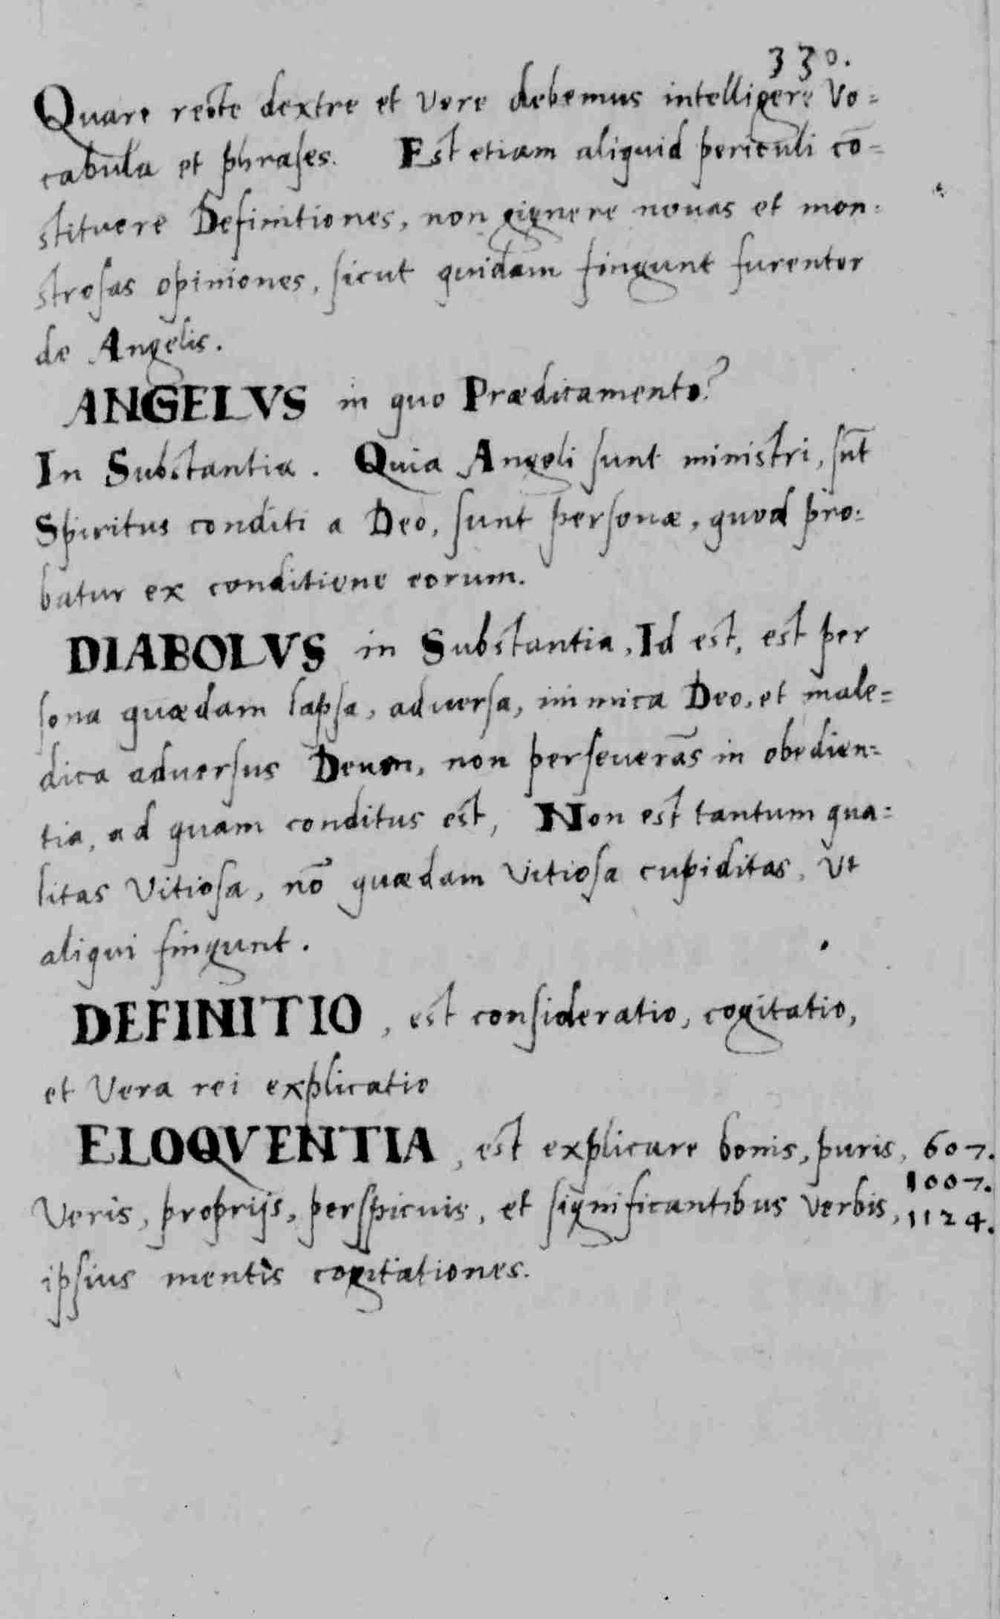 330.
Quare recte dextre et vere debemus intelligere Vo=
cabula et phrases. Est etiam aliquid periculi cō=
stituere Definitiones, non gignere novas et mon=
strosas opiniones, sicut quidam fingunt furenter
de Angelis.
ANGELVS in quo Prædicamento?
In Substantia. Quia Angeli sunt ministri, sūt
Spiritus conditi a Deo, sunt personæ, quod pro=
batur ex conditione eorum.
DIABOLVS in Substantia, Id est, est per
sona quædam lapsa, adversa, inimica Deo, et male=
dica adversus Deum, non perseverās in obedien=
tia, ad quam conditus est, Non est tantum qua=
litas Vitiosa, nō quædam Vitiosa cupiditas, Vt
aliqui fingunt.
DEFINITIO, est consideratio, cogitatio,
et Vera rei explicatio
ELOQVENTIA, est explicare bonis, puris, 607.
1007.
Veris, proprijs, perspicuis, et significantibus verbis, 1124.
ipsius mentis cogitationes.